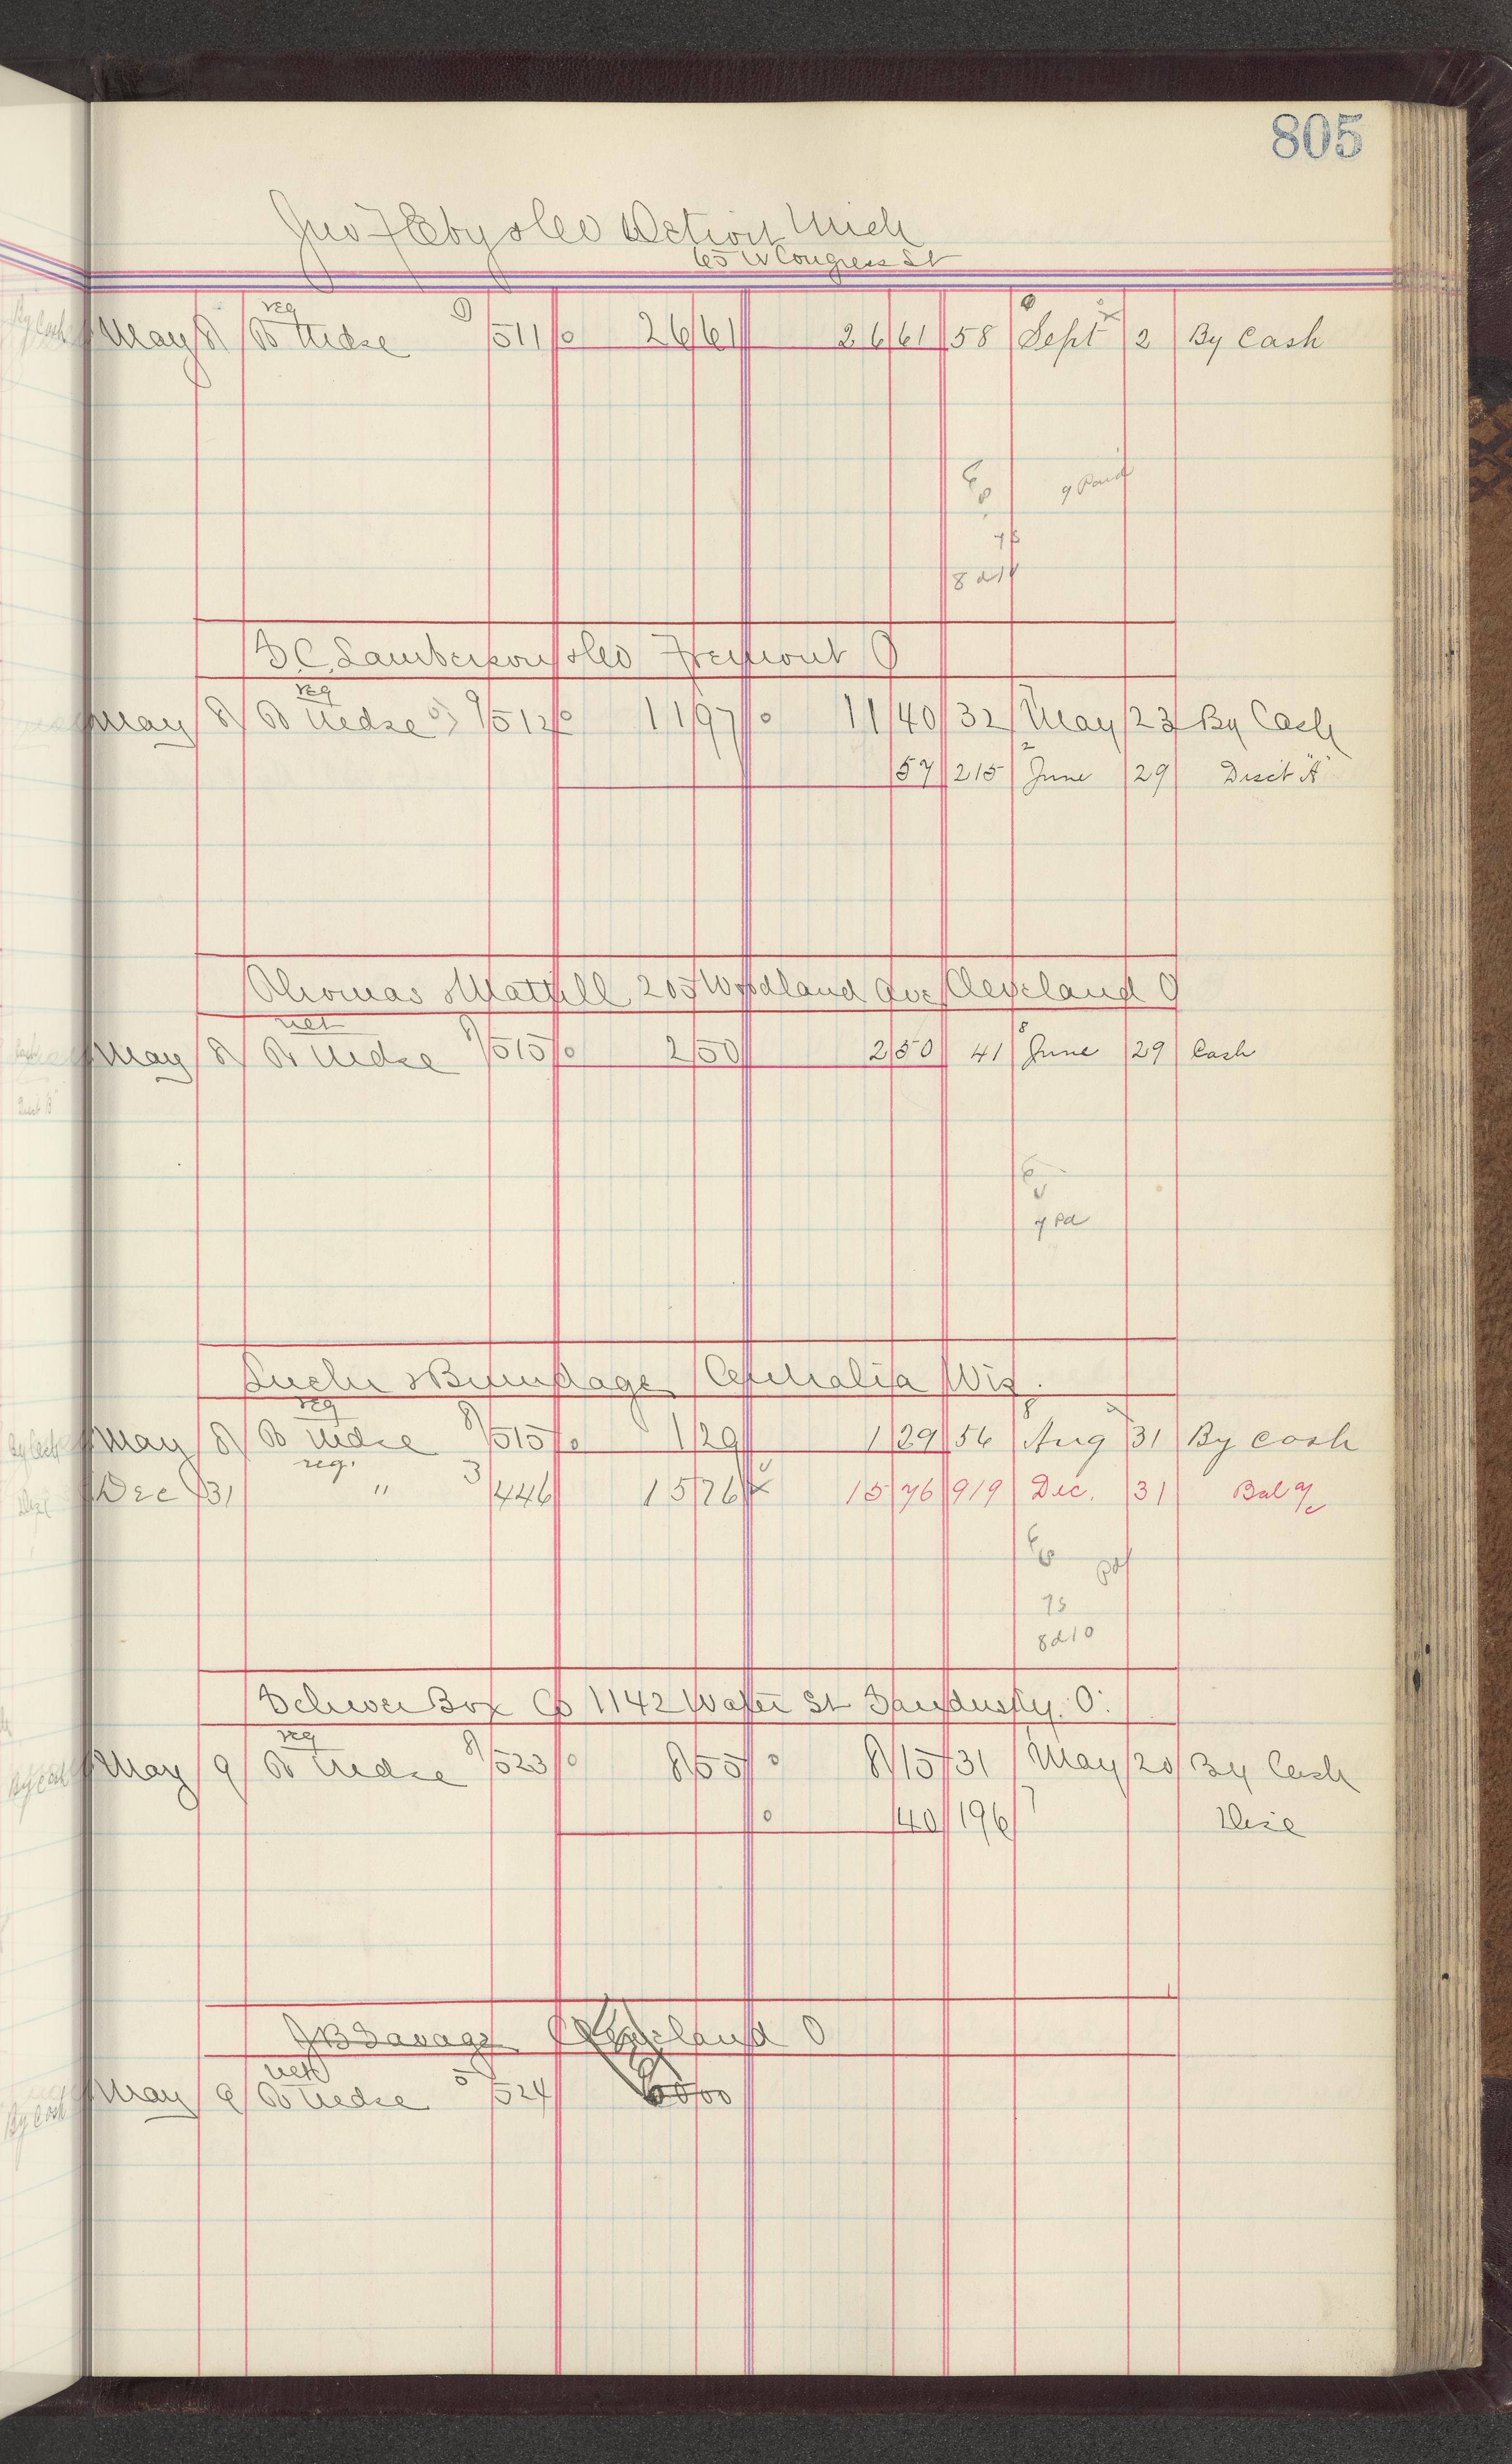 805
Jno F Eby & Co Detroit Mich
65 W Congress St
reg
May 8 To Mdse 511 26 61 26 61 58 Sept 2 By Cash
9 Paid
7 S
8 d 14
S.C. Lamberson & Co Fremont O
reg
May 8 To Mdse 9 512 11 97 11 40 32 May 23 By Cash
57 215 June 29 Disct "A"
Thomas & Mattill 205 Woodland Ave Cleveland O
net
May 8 To Mdse 8 515 2 50 2 50 41 June 29 Cash
7 Pd
& Brundage Centralia Wis.
reg
May 8 To Mdse 8 515 1 29 1 29 56 Aug 31 By Cash
reg.
Dec 31 " 3 446 15 76 15 76 919 Dec. 31 Bal %
Pd
7 S
8 d 10
Schwer Box Co 1142 Water St Sandusky. O.
reg
May 9 To Mdse 8 523 8 55 8 15 31 May 20 By Cash
40 196 Disc
J B Savage Cleveland O
net
May 9 To Mdse 5 524 60 00